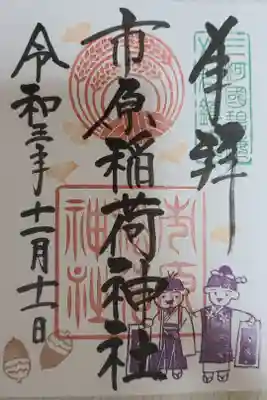 奉拝
市原稲荷神社
令和三年十一月十一日
三河國碧
市原稲荷神社